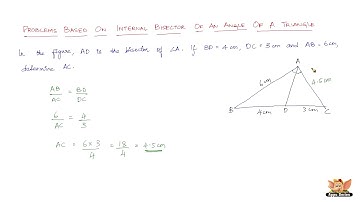 Problems Based on Internal Bisector Of an Angle Of A Triangle
In the figure, AD is the bisector of ∠A. If BD = 4 cm, DC = 3 cm and AB = 6 cm,
determine AC.
AB/AC = BD/DC
6/AC = 4/3
AC = 6×3/4 = 18/4 = 4.5 cm
A
6 cm
4.5 cm
B
4 cm
D
3 cm
C